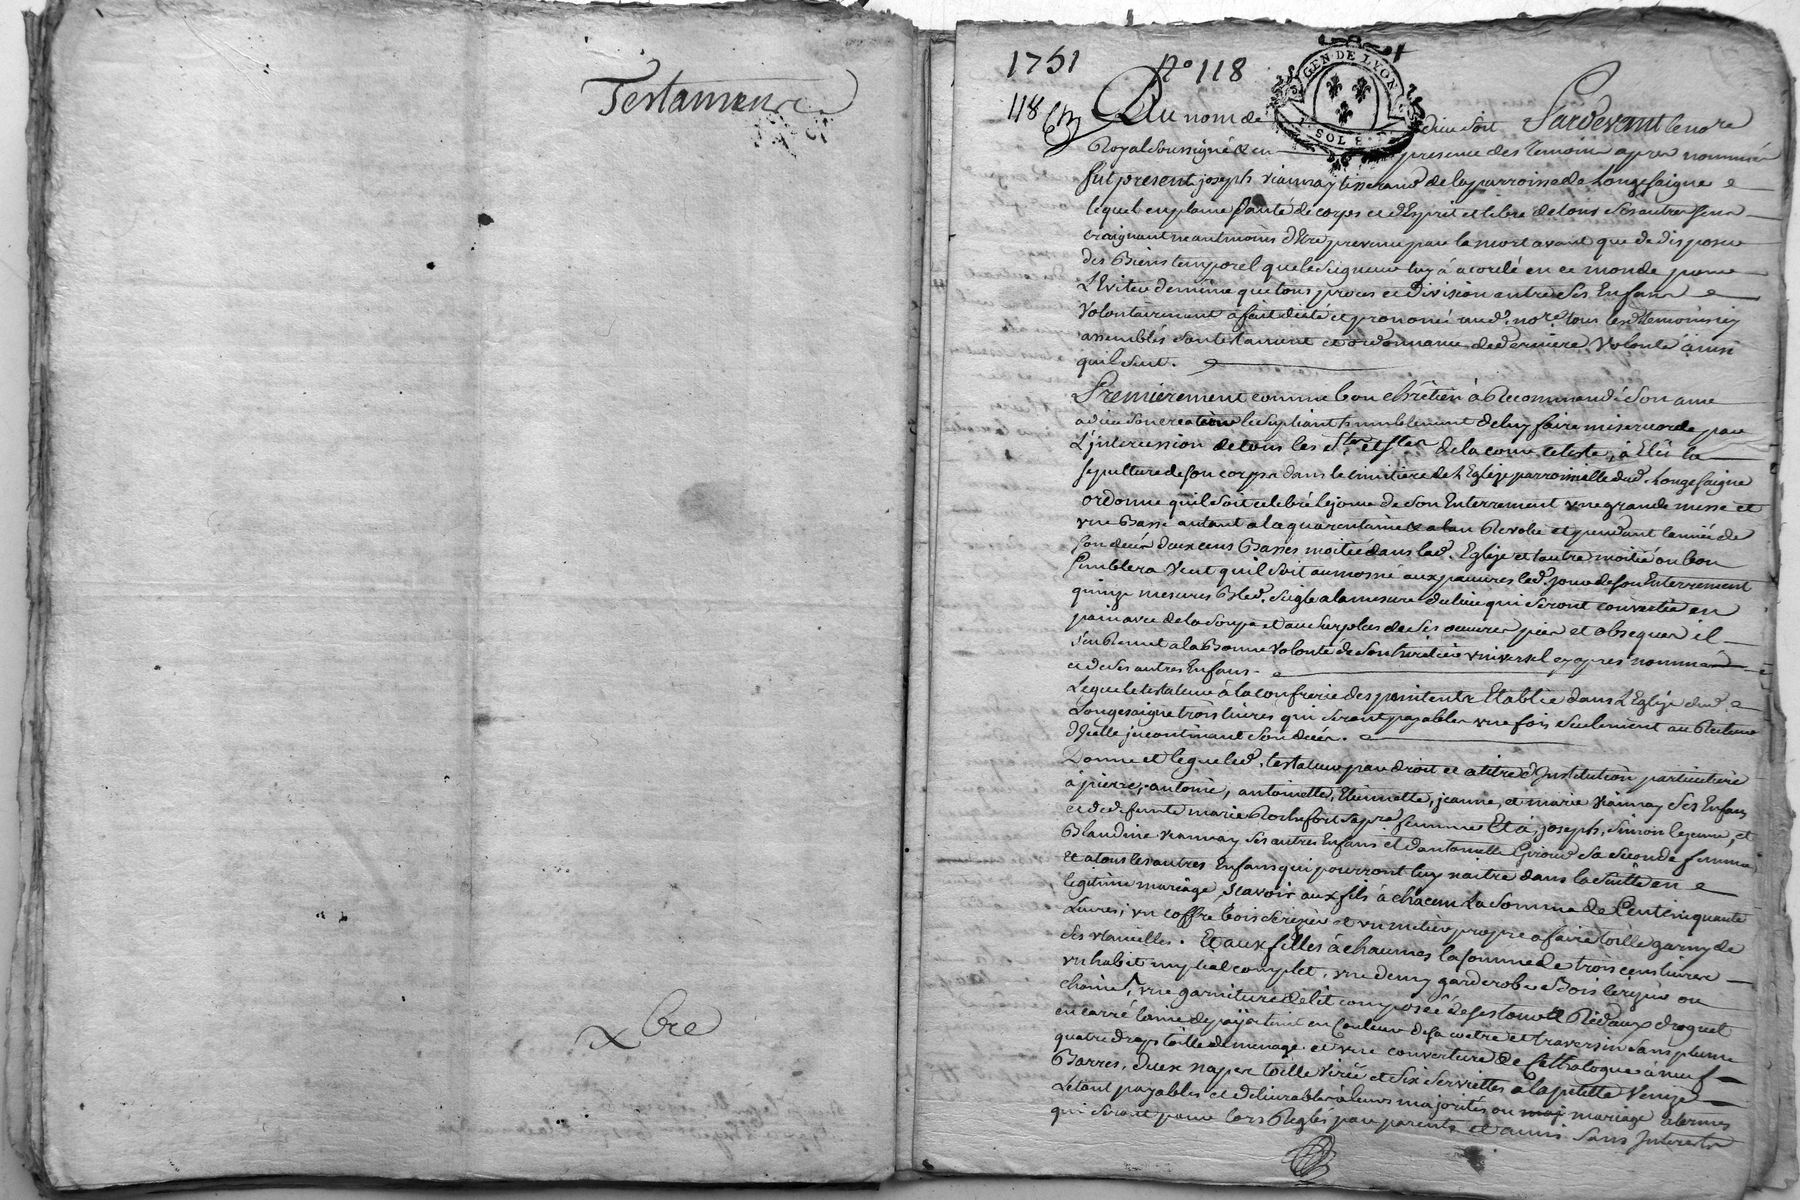 Testament
xbre
1751 n° 118
118
GEN · DE LYON
1 · SOL 8 ·
Au nom de dieu soit Pardevant le no.re
Royal soussigné et en presence des temoins apres nommés
fut present joseph viannay tisserand de la parroisse de Longesaigne
lequel en plaine santé de corps et d'Esprit et libre de tous ses autres sens
craignant neantmoins d'Etre prevenu par la mort avant que de disposer
des Biens temporel que le Seigneur luy à acordé en ce monde pour
L'Eviter de meme que tous proces et division entre ses Enfans
Volontairement à fait dicté et prononcé aud. no.re tous les temoins cy
assemblés son testament et ordonnance de derniere Volonté ainsi
quil suit.
Premierement comme bon chrêtien à Recommandé son ame
a dieu son createur le supliant humblement de luy faire misericorde par
L'jntercession de tous les S.ts et S.tes de la cour celeste, à Elû la
sepulture de son corps dans le cimitiere de L'Eglize parroissielle dud. Longesaigne
ordonne quil soit celebré le jour de son Enterrement vne grande messe et
vne Basse autant a la quarentaine et a l'an Revolu et pendant l'année de
son decés deux cens Basses moitié dans lad. Eglize et l'autre moitié ou bon
semblera Veut quil soit aumosné aux pauvres led. jour de son Enterrement
quinze mesures Bled seigle a la mesure du lieu qui seront convertis en
pain avec de la soupe et au surplus de ses oeuvres pies et obseques il
s'en Remet a la Bonne Volonté de son heritier vniversel cy apres nommé
et de ses autres Enfans.
Legue le testateur à la confrerie des penitents Etablie dans L'Eglize dud.
Longesaigne trois livres qui seront payables vne fois seulement au Recteur
d'jcelle jncontinant son decés.
Donne et legue led. testateur par droit et a titre d'Institution particuliere
à pierre, antoine, antoinette, Etiennette, jeanne, et marie viannay ses Enfans
et de defunte marie Rochefort sa pre. femme Et à joseph, simon le jeune, et
Blandine viannay ses autres Enfans et d'antoinette Giroud sa seconde femme,
Et a tous les autres Enfans qui pourront luy naitre dans la suitte en
legitime mariage, scavoir aux fils à chacun La somme de Cent cinquante
Livres; vn coffre bois cerizier et vn metier propre a faire toille garny de
ses vtancilles. Et aux filles à chacunes la somme de trois cens livres
vn habit nuptial complet, vne demy garderobe Bois cerizier ou
chaine, vne garniture de lit composée de ses tour de Rideaux droguet
en carré laine de païs teint en Couleur desa coetre et traversin sans plume
quatre draps toille de menage et vne couverture de Cathalogne à neuf
Barres, deux napes toille Virée et six serviettes a la petitte Venize
Le tout payables et delivrables à leurs majorités ou mariage et termes
qui seront pour lors Reglés par parents et amis sans Interests